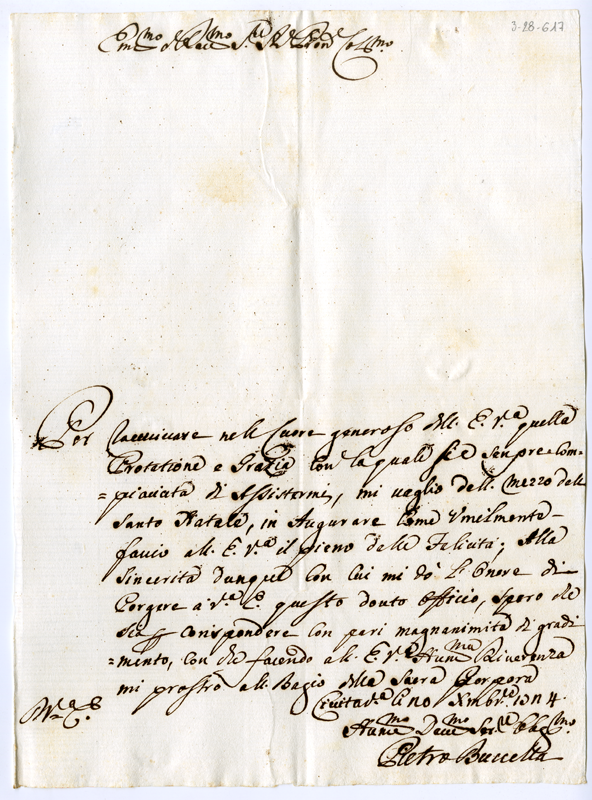 3-28-617
Em.mo e Rev.mo Sig.re Sig.re Pron.e Col.mo
Per ravvivare nell Cuore generoso dell. E. V.a quella
Protatione e Grazia con la quale si è senpre com=
=piaciuta di Assistermi, mi veglio dell. mezzo dell
Santo Natale, in Augurare come Vmilmente
faccio all. E. V.a il pieno delle Felicità; Alla
Sincerità dunque con cui mi dò l'Onore di
Porgere a V.a E. questo douto Officio, spero che
sia corispondere con pari magnanimità di gradi
=mento, con che facendo all. E. V.a Hum.ma Riverenza
mi prostro all. Bagio della Sacra Porpora
Civita
Hum.mo Dev.mo Ser.re Obbl.mo
Pietro Buccella